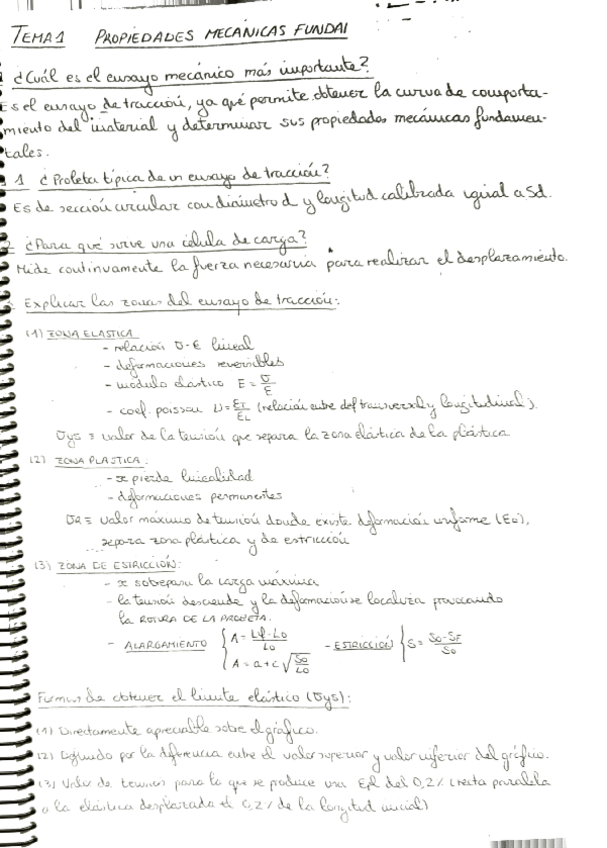 TEMA 1 PROPIEDADES MECÁNICAS FUNDAI
¿Cuál es el ensayo mecánico más importante?
Es el ensayo de tracción, ya que permite obtener la curva de comporta-
miento del material y determinar sus propiedades mecánicas fundamen-
tales.
1 ¿Probeta típica de un ensayo de tracción?
Es de sección circular con diámetro d y longitud calibrada igual a 5d.
2 ¿Para qué sirve una célula de carga?
Mide continuamente la fuerza necesaria para realizar el desplazamiento.
Explicar las zonas del ensayo de tracción:
(1) ZONA ELASTICA
- relación σ-ε lineal
- deformaciones reversibles
- módulo elástico E = σ/ε
- coef. poisson ν = εT/εL (relación entre def transversal y longitudinal).
σys ≡ valor de la tensión que separa la zona elástica de la plástica
(2) ZONA PLASTICA:
- se pierde linealidad
- deformaciones permanentes
σR ≡ valor máximo de tensión donde existe deformación uniforme (εu),
separa zona plástica y de estricción
(3) ZONA DE ESTRICCIÓN:
- se sobrepasa la carga máxima
- la tensión desciende y la deformación se localiza provocando
la ROTURA DE LA PROBETA.
- ALARGAMIENTO { A = Lf-Lo/Lo - ESTRICCIÓN { S = So-SF/So
A = a+c √So/Lo
Formas de obtener el límite elástico (σys):
(1) Directamente apreciable sobre el gráfico.
(2) Definido por la diferencia entre el valor superior y valor inferior del gráfico.
(3) Valor de tension para la que se produce una Epl del 0,2% (recta paralela
a la elástica desplazada el 0,2% de la longitud inicial)